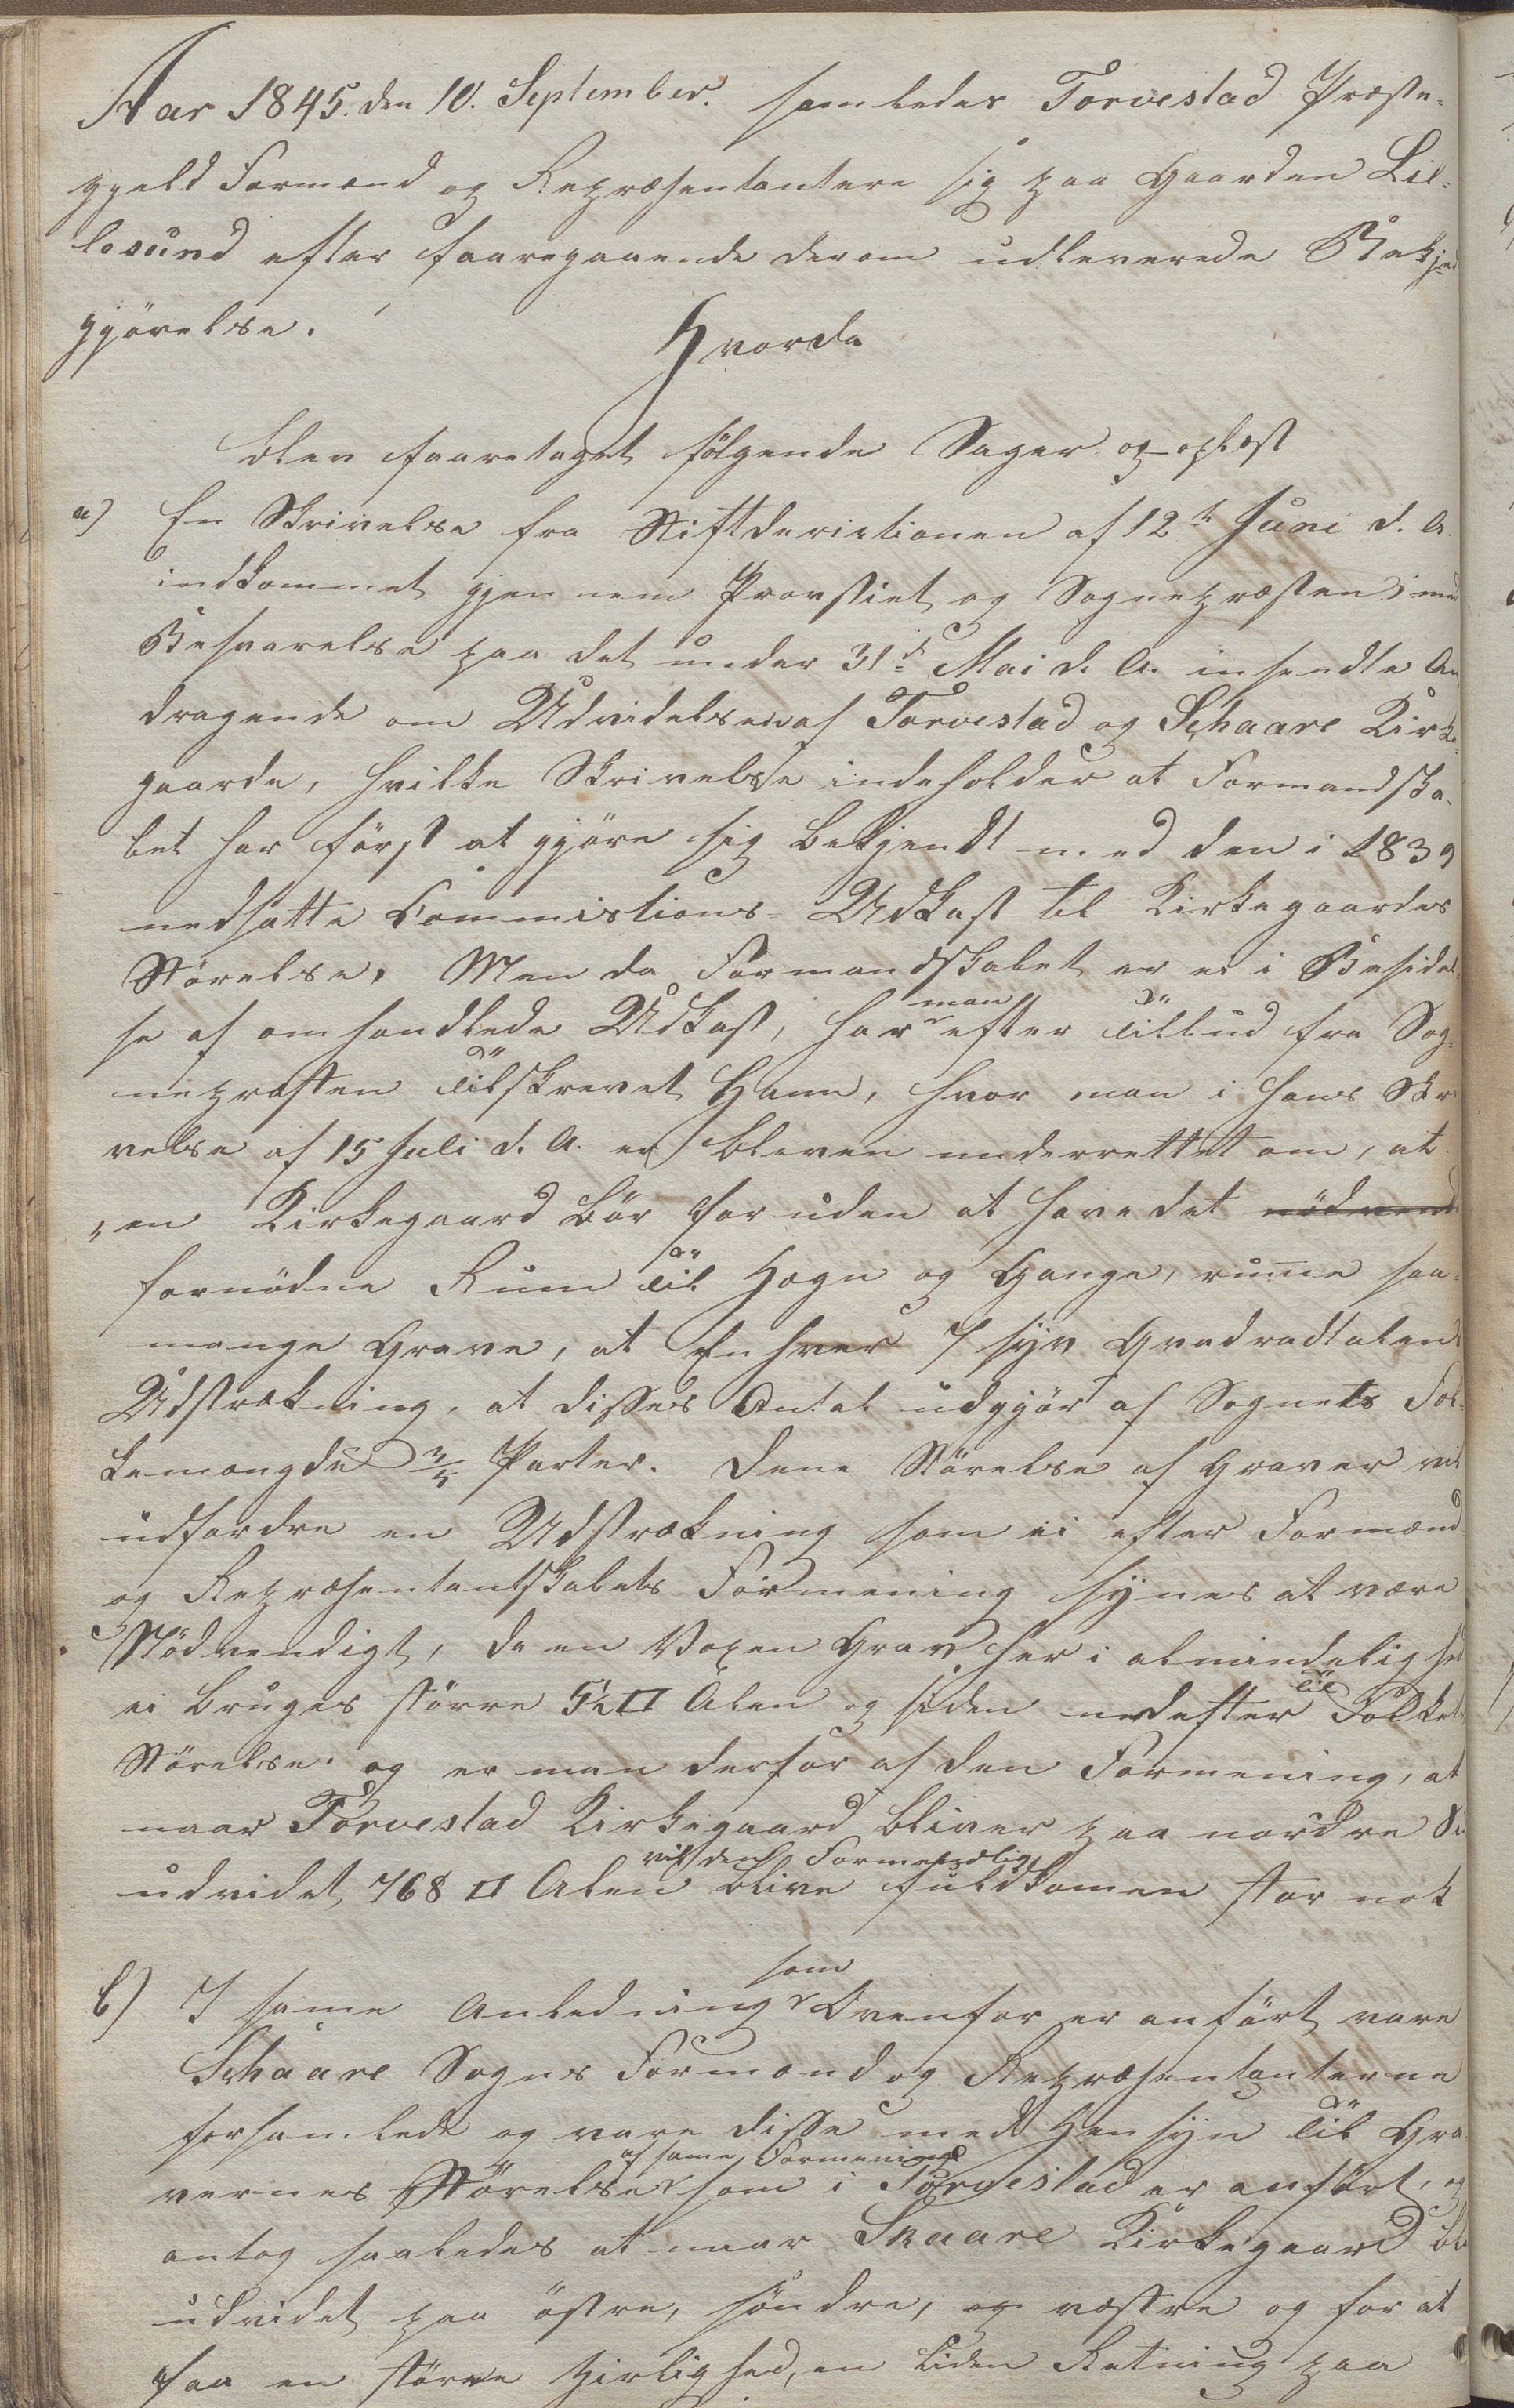 Aar 1845. den 10. September. samledes Torvestad Præste-
gjeld Formænd og Repræsentantere sig paa Gaarden Lil-
lesund efter foregaaende derom udleverede Bekjendt
gjörelse.
Hvorda
blev foretaget fölgende Sager og oplæst
a) En Skrivelse fra Stiftderictionen af 12te Juni d. A.
indkommet gjennem Provstiet og Sognepræsten, med
Besvarelse paa det under 31d Mai d. A. insendte An
dragende om Udvidelsen af Torvestad og Schaare Kirke-
gaarde, hvilke Skrivelse indeholder at Formandska-
bet har först at gjöre sig bekjendt med den i 1839
nedsatte Commistions-Udkast til Kirkegaardes
Störelse. Men da Formandskabet er ei i Besidel-
se af omhandlede Udkast, har man efter Tilbud fra Sog-
nepræsten Tilskrevet Ham, hvor man i hans Skri
velse af 15 Juli d. A. er bleven underrettet om, at
"en Kirkegaard bör foruden at have det nödvend
fornödne Rum til Hegn og Gange, rume saa-
mange Grave, at Enhver 7 syv Qvadradtalens
Udstrækning, at disses Antal udgjör af Sognets Fol-
kemængde 3/4 Parter. Dene Störelse af Graver vil
udfordre en Udstrækning som ei efter Formænd
og Repræsentantskabets Formening synes at være
Nödvendigt, da en Voxen Grav her i almindelighed
ei bruges större 5½ □ Alen og siden nedefter til Folkets
Störelse. og er man derfor af den Formening, at
naar Torvestad Kirkegaard bliver paa nordre
udvidet 768 □ Alen vil den Formentlig blive fuldkomen stor nok
b) I same Anledning som Ovenfor er anfört vare
Schaare Sogns Formænd og Repræsentanterne
forsamlede og vare disse med Hensyn til Gra
vernes Störelse af same Formening som i Torvestad er anfört, og
antog saaledes at naar Skaare Kirkegaard
udvidet paa östre, söndre, og vestre og for at
faa en större Zirlighed, en liden Retning paa